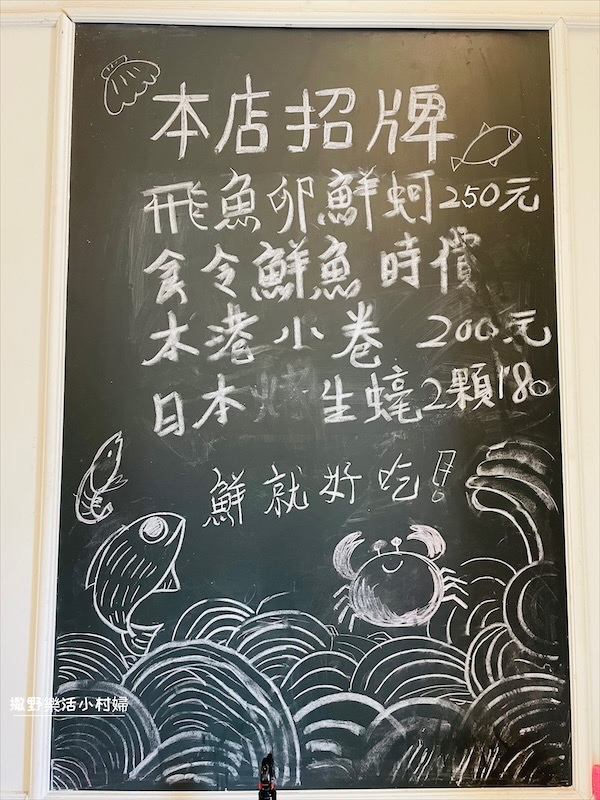 本店招牌
飛魚卵鮮蚵250元
食令鮮魚 時價
本港小卷 200元
日本 烤 生蠔2顆180
鮮就好吃!
撒野樂活小村婦